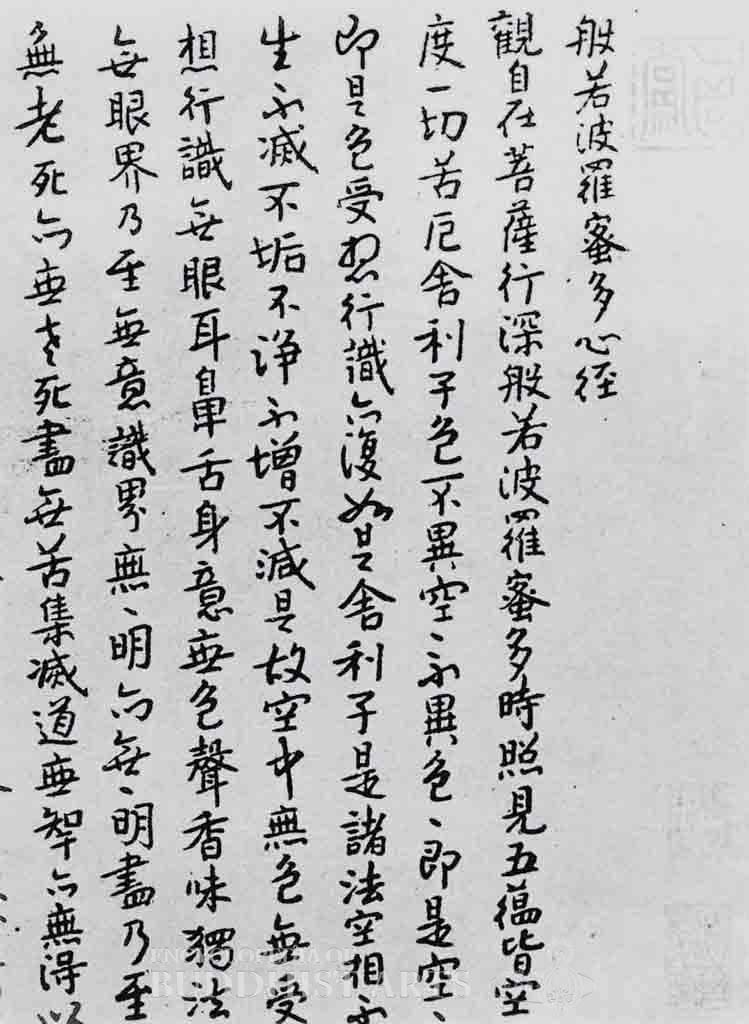 般若波羅蜜多心径
觀自在菩薩行深般若波羅蜜多時照見五蘊皆空
度一切苦厄舍利子色不異空、不異色、即是空、
即是色受想行識亦復如是舍利子是諸法空相不
生不滅不垢不淨不增不減是故空中無色無受
想行識無眼耳鼻舌身意無色聲香味獨法
無眼界乃至無意識界無、明亦無、明盡乃至
無老死亦無老死盡無苦集滅道無智亦無得以
ENCYCLOPEDIA OF
BUDDHIST ARTS